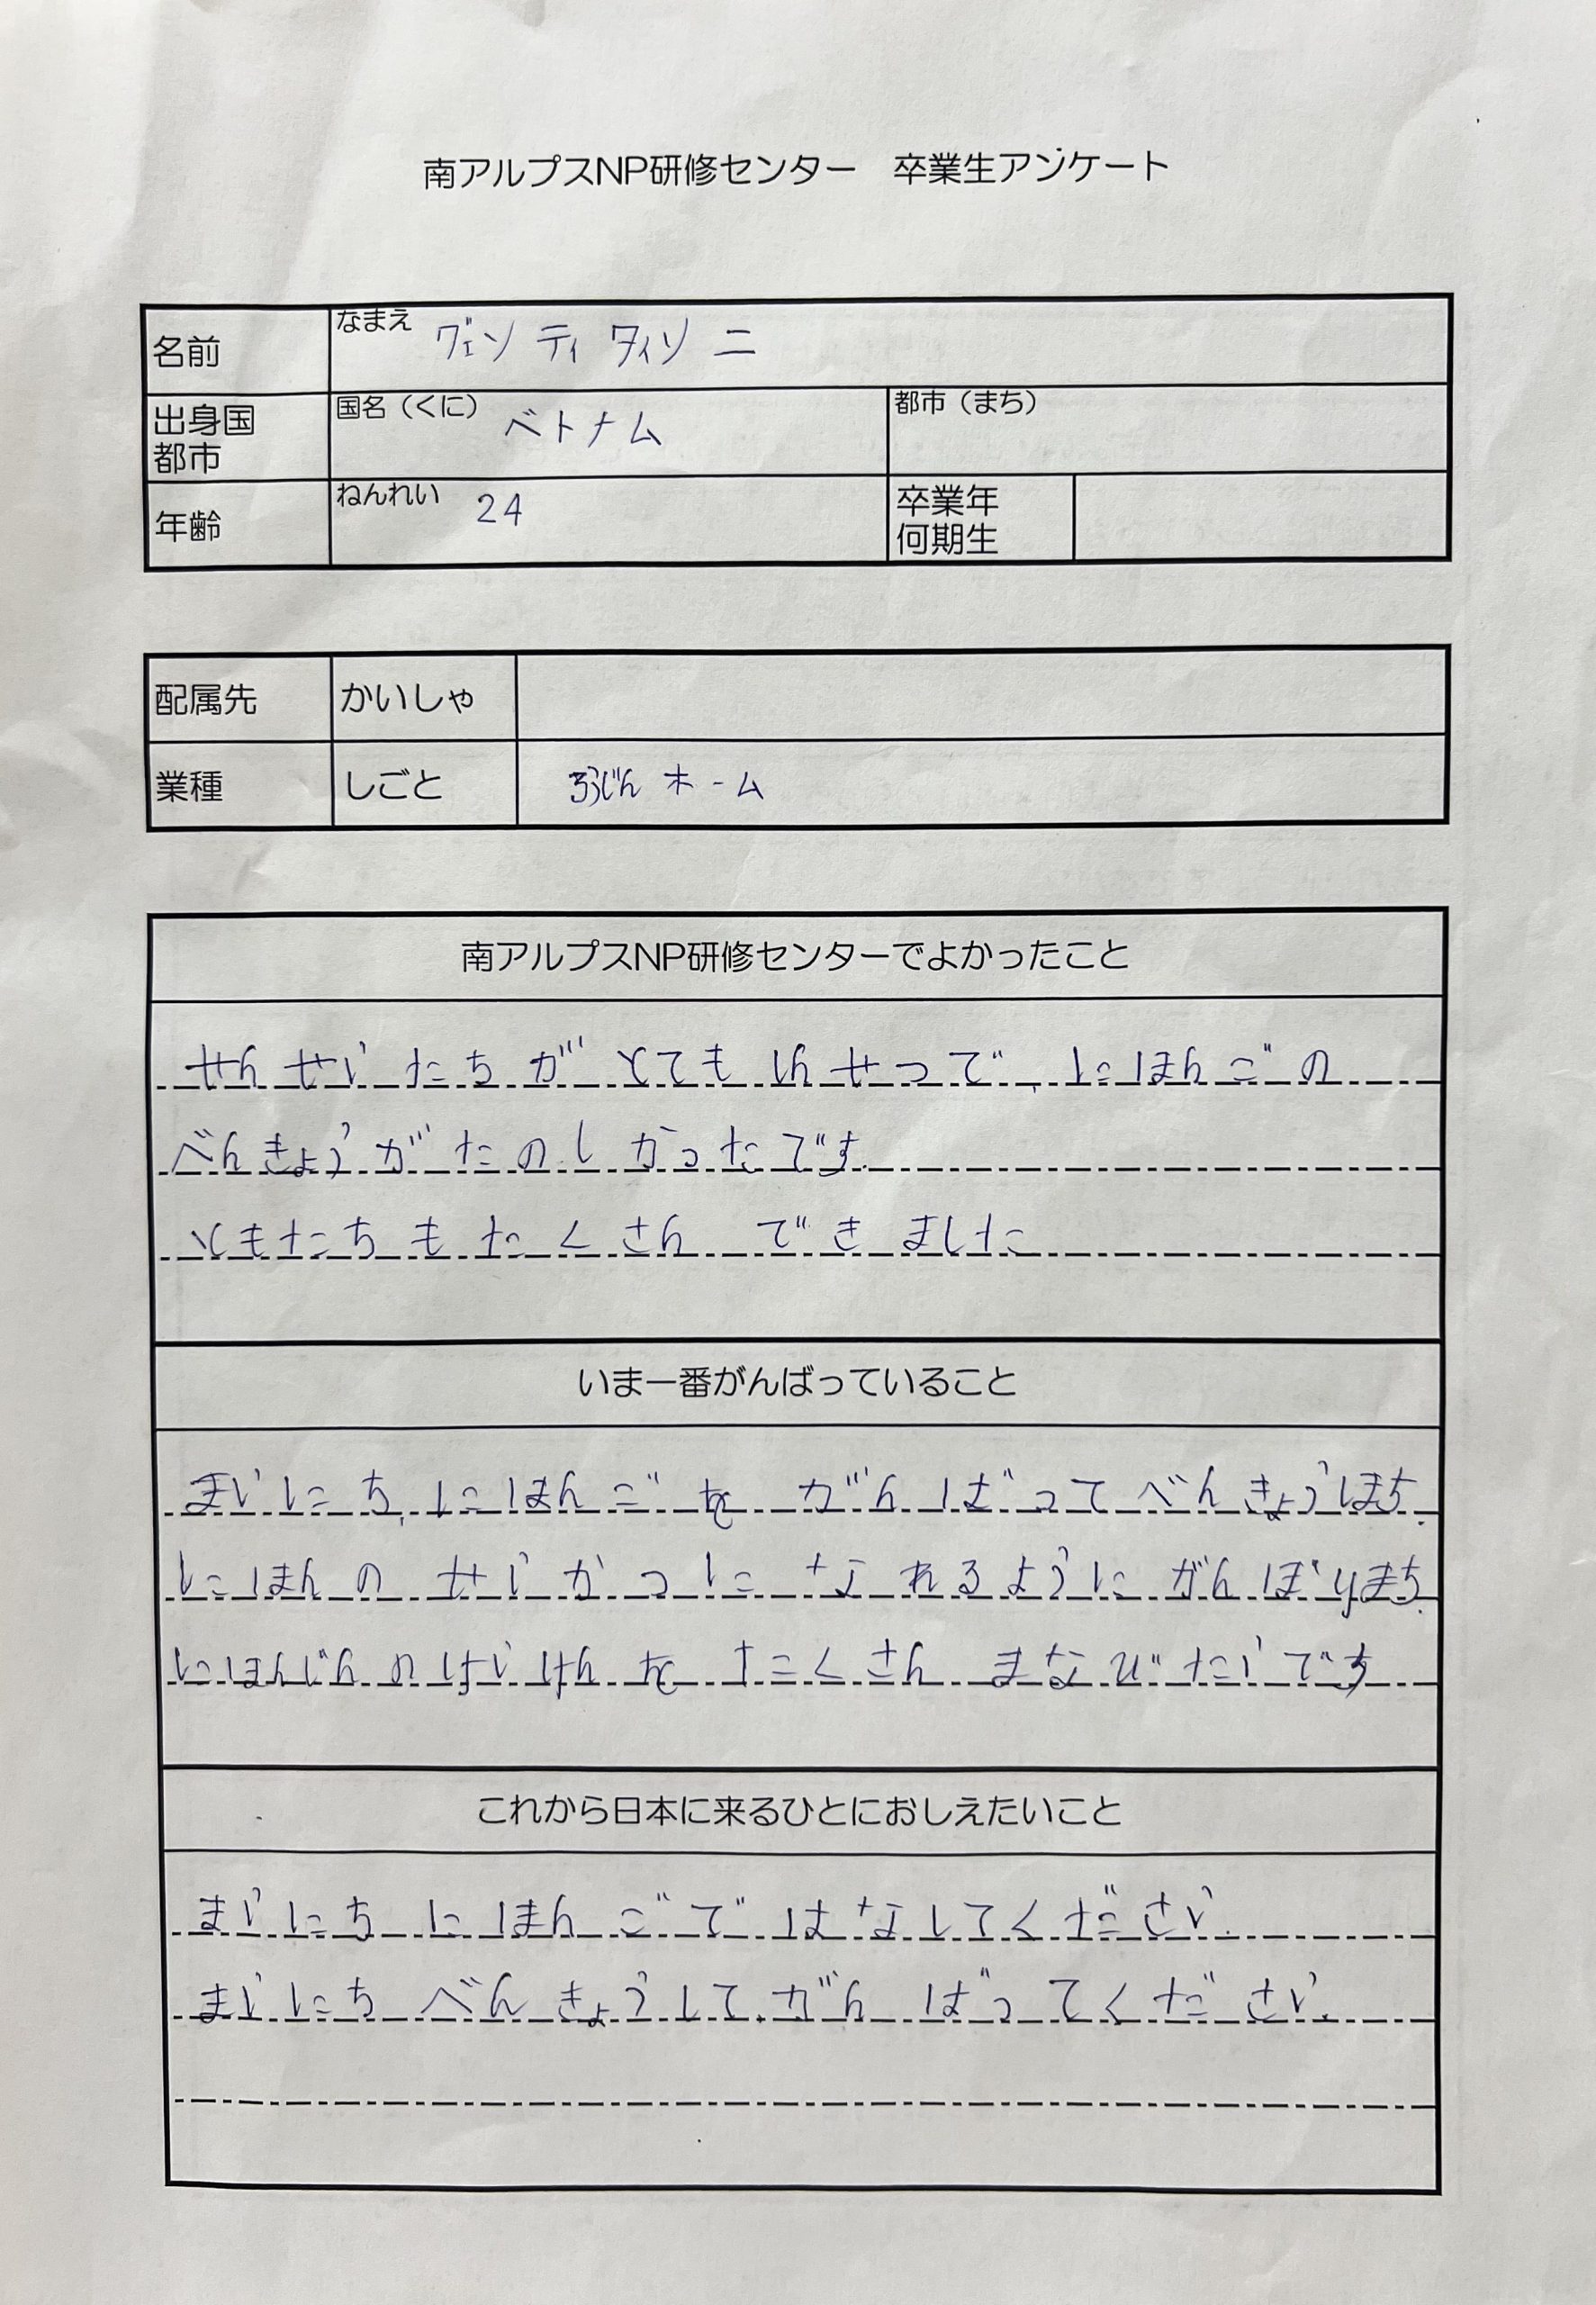 南アルプスNP研修センター 卒業生アンケート
名前
なまえ グェン ティ タイソ ニ
出身国
都市
国名（くに） ベトナム
都市（まち）
年齢
ねんれい 24
卒業年
何期生
配属先 かいしゃ
業種 しごと ろうじん ホーム
南アルプスNP研修センターでよかったこと
せんせい たちが とても しんせつで、にほんごの
べんきょうがたのしかったです.
ともたちもたくさん できました
いま一番がんばっていること
まいにち, にほんごを がんばって べんきょうします.
にほんの せいかつに なれるように がんばります.
にほんじんのけいけんを たくさん まなびたいです
これから日本に来るひとにおしえたいこと
まいにち にほんごで はなしてください.
まいにち べんきょうして. がんばってください.